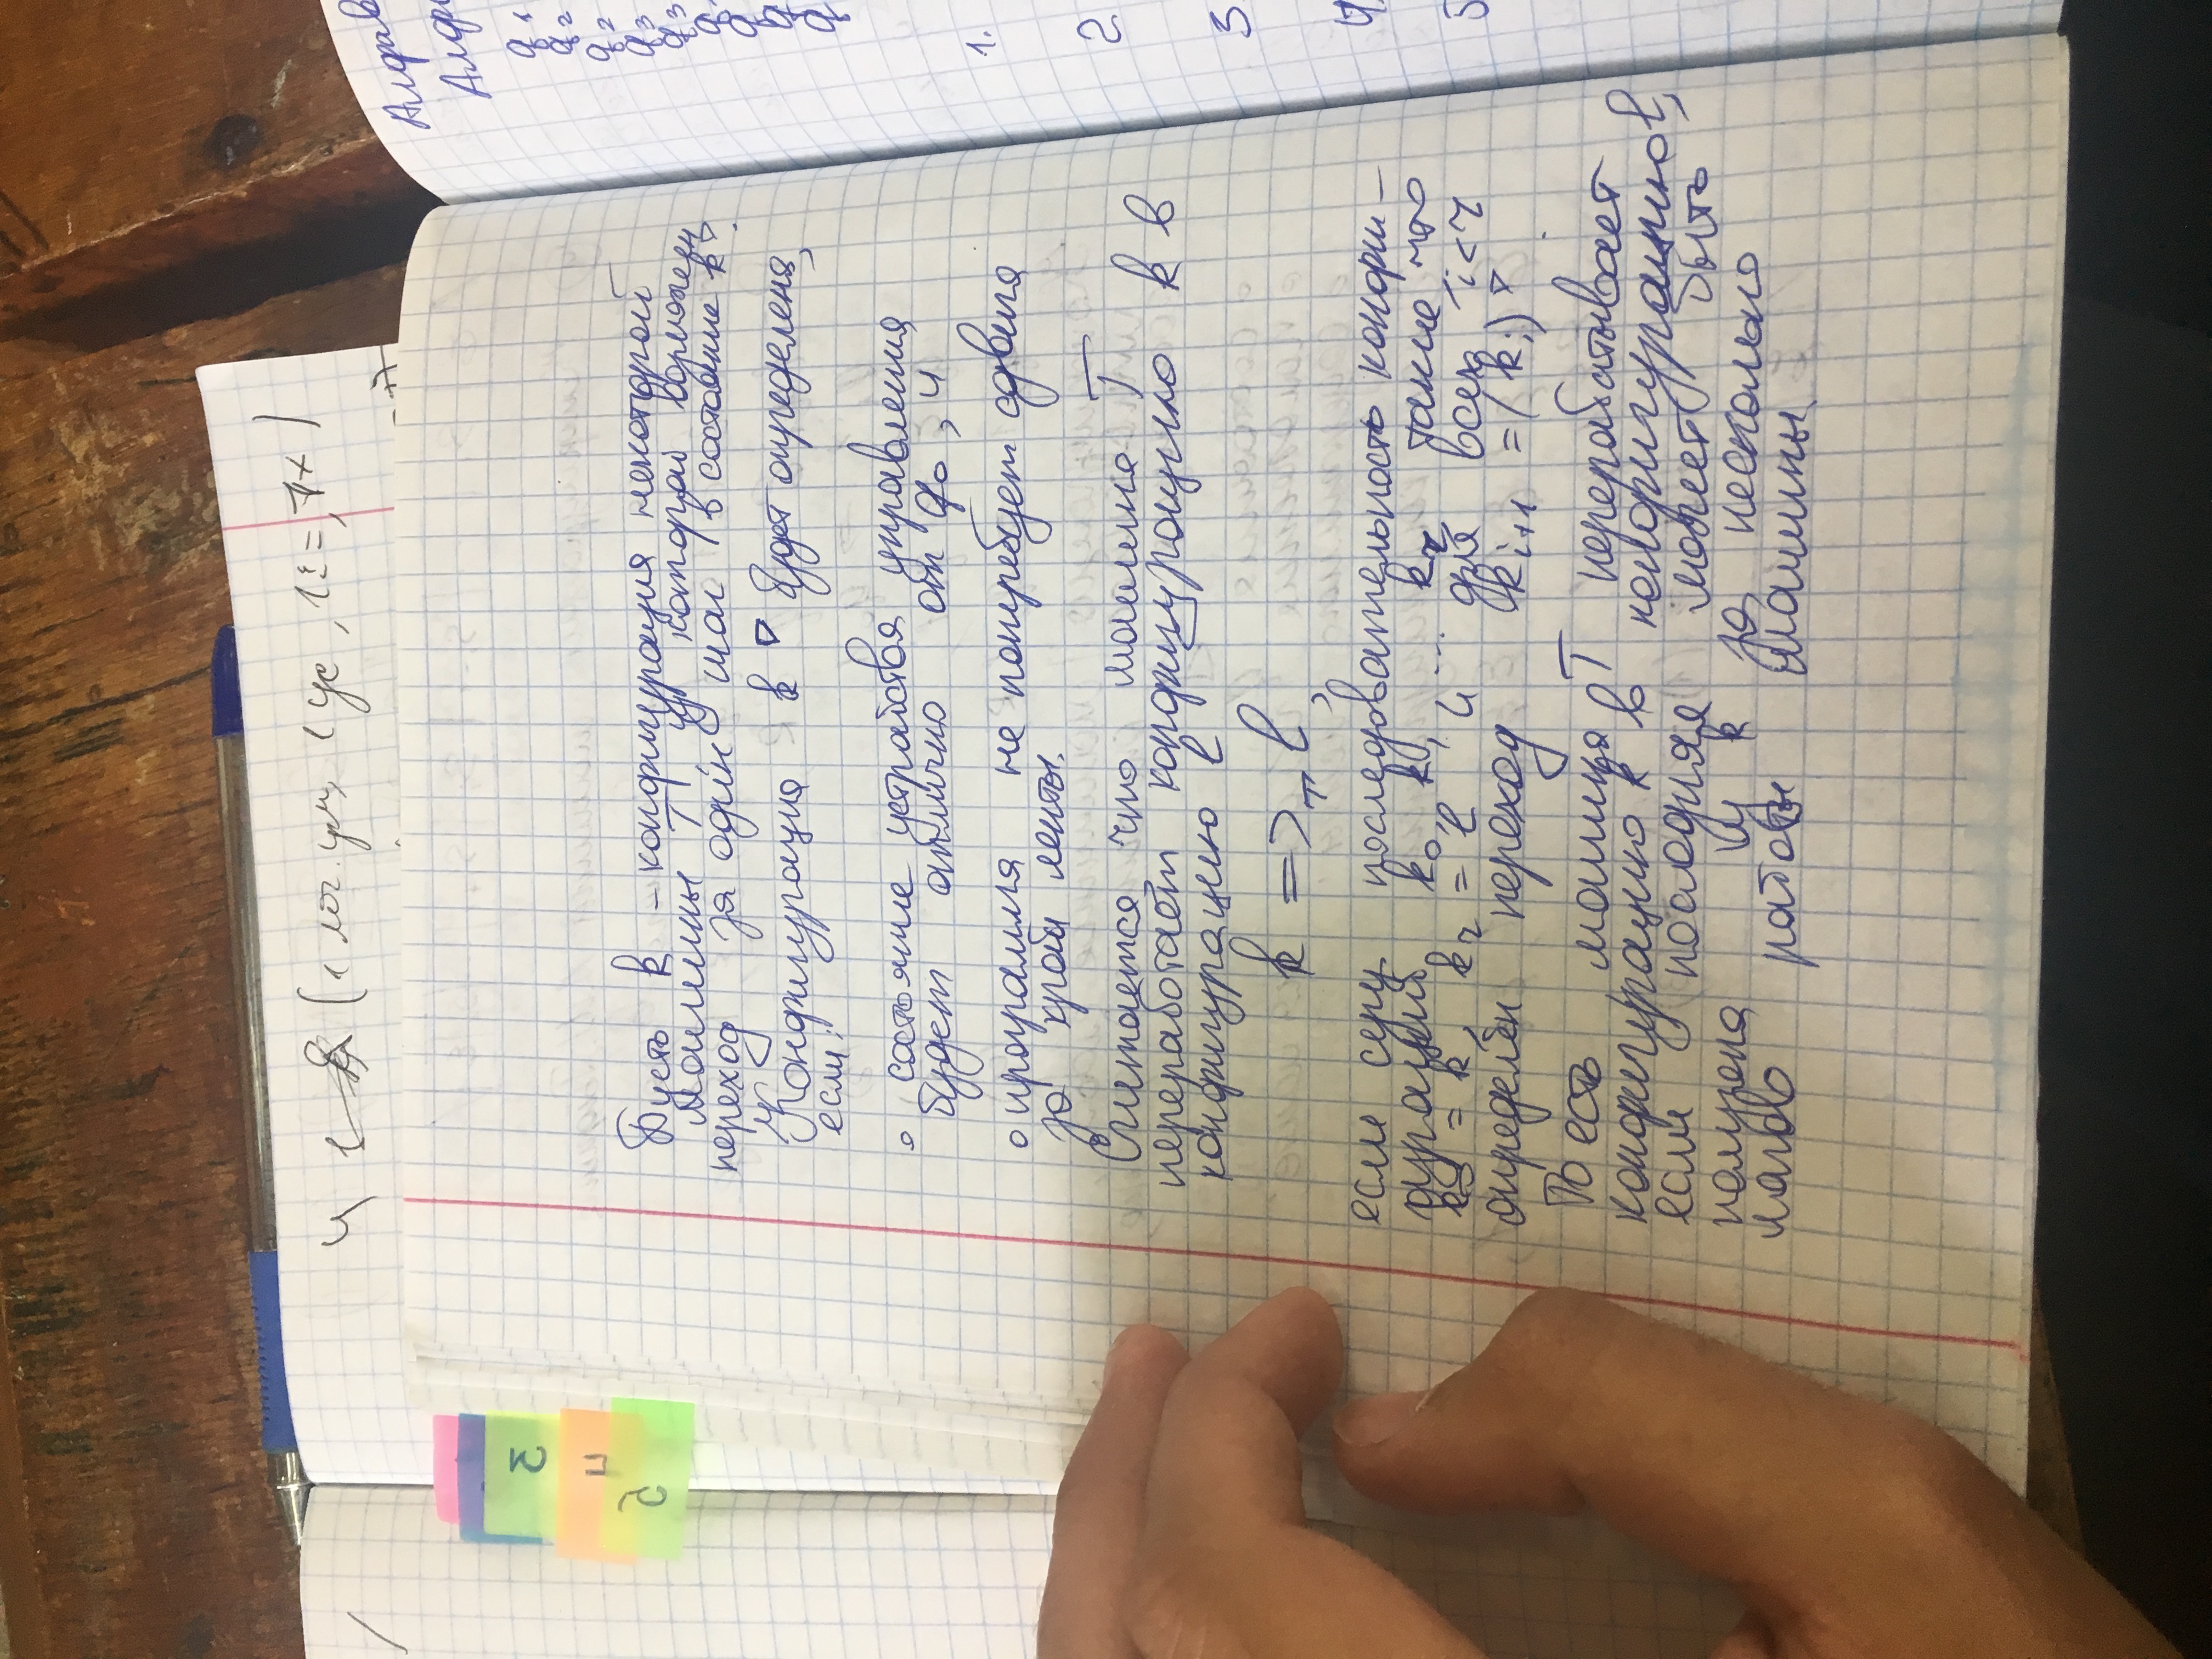 4 1 (1 лог. ум, 1 ус, 1:=, 7x)
3
4
5
Пусть k – конфигурация некоторой
машины T, у которой возможен
переход за один шаг в состояние k▷.
Конфигурация k▷ будет определена,
если:
∘ состояние устройства управления
будет отлично от q₀, и
∘ программа не потребует сдвига
за край ленты.
Считается, что машина T
переработает конфигурацию k в
конфигурацию l
k =>ₜ l,
если сущ. последовательность конфи-
гураций k₀, k₁, ... kᵣ, такие, что
k₀ = k, kᵣ = l и для всех i<r
определён переход kᵢ₊₁ = (kᵢ)▷.
То есть, машина T перерабатывает
конфигурацию k в конфигурацию l,
если последняя может быть
получена из k за несколько
шагов работы машины.
Алфав
Алфа
q₁
q₂
q₂
q₃
q₃
q
q
q
q
1.
2
3
4.
5